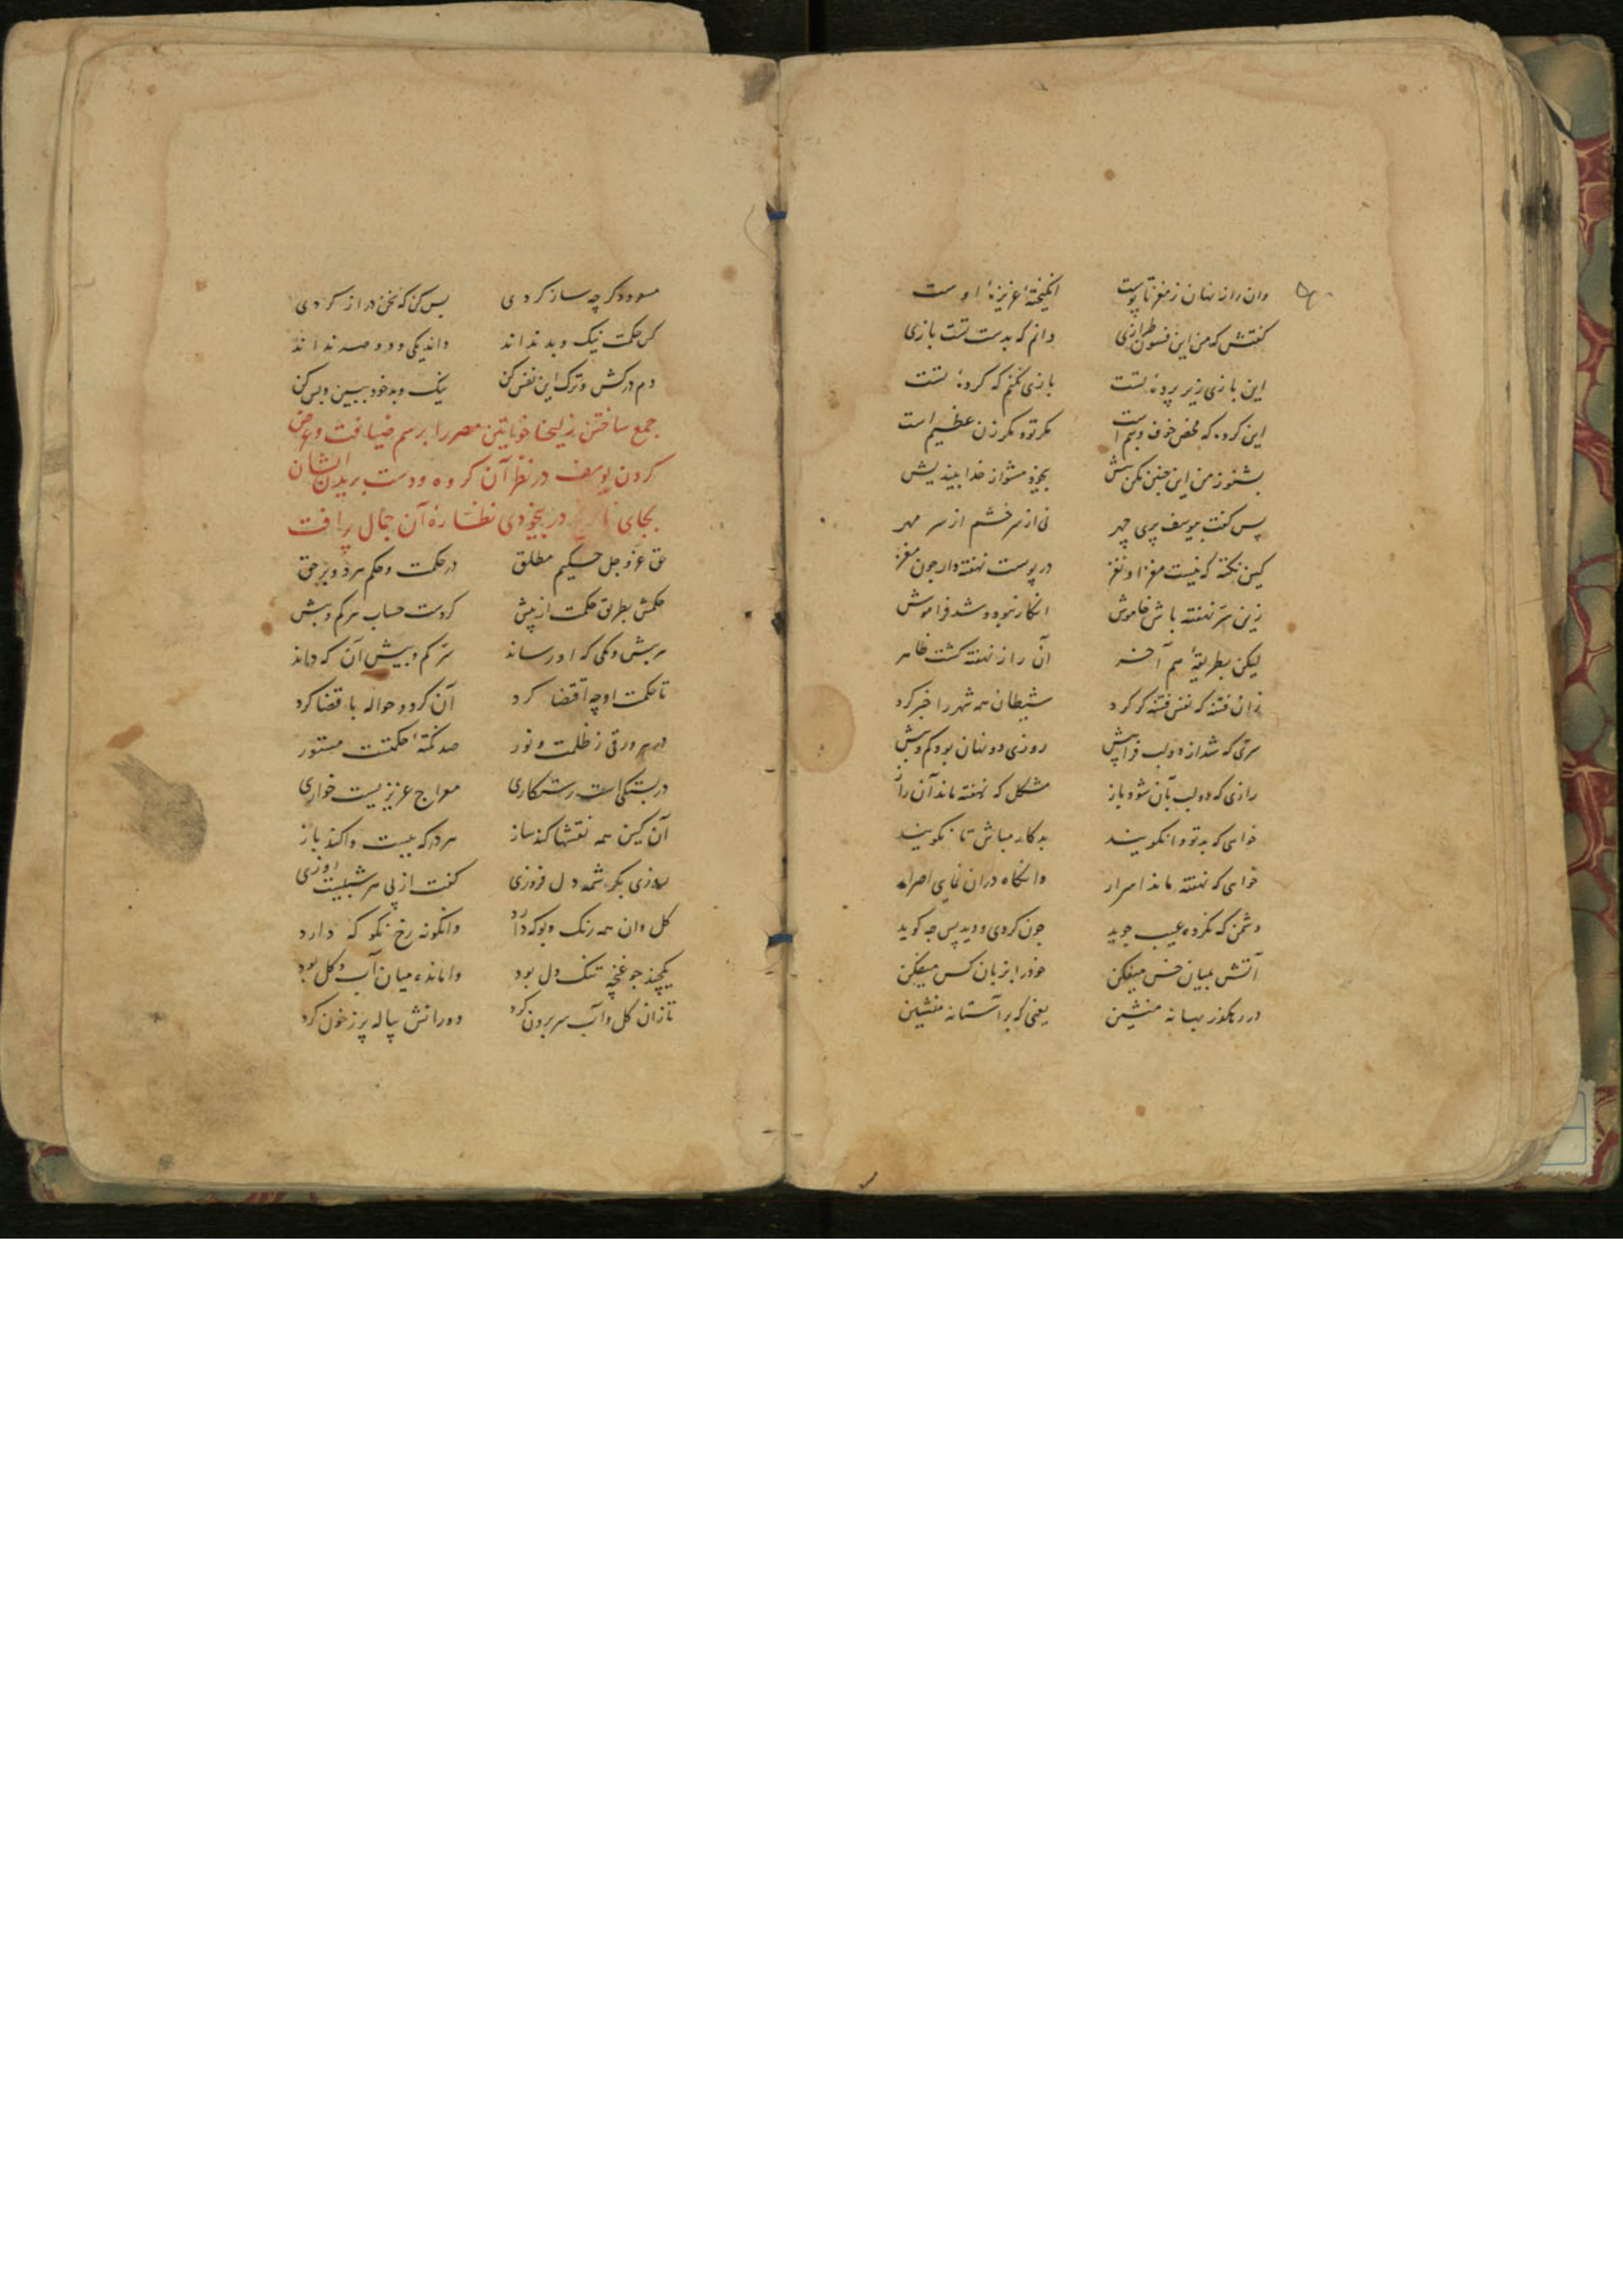 وان راز نهان ز مغز تا پوست انکیختهٔ عزیزهٔ اوست
کفتش که من این فسون طرازی دانم که بدست تست بازی
این بازی زیر پردهٔ تست بازی نکنم که کردهٔ تست
این کرده که محض خوف و بیم است مکر تو و مکر زن عظیم است
بشنو ز من این چنین مکن بیش بیخود مشو از خدا بیندیش
پس کفت بیوسف پری چهر نی از سر خشم از سر مهر
کین نکته که نیست مغز او نغز در پوست نهفته دار جون مغز
زین سر نهفته باش خاموش انکار نبود و شد فراموش
لیکن بطریقهٔ هم آخر آن راز نهفته کشت ظاهر
زان فتنه که نفس فتنه کر کرد شیطان همه شهر را خبر کرد
سری که شد از دو لب فرا پیش روزی دو نهان بود کم و بیش
رازی که دو لب بآن شود باز مشکل که نهفته ماند آن راز
خواهی که بد تو وانکویند بدکار مباش تا نکویند
خواهی که نهفته ماند اسرار وانکاه دران نمایی اصرار
دشمن که نکرده عیب جوید جون کردی و دید پس چه کوید
آتش بمیان خس میفکن خود را بزبان کس میفکن
در رهکذر میانه منشین یعنی که بر آستانه منشین
مسعود کر چه ساز کردی بس کن که سخن دراز کردی
کس حکمت نیک و بد نداند داند یکی و دو صد نداند
دم درکش و ترک این نفس کن نیک و بد خود ببین و بس کن
جمع ساختن زلیخا خواتین مصر را برسم ضیافت و عرض
کردن یوسف در نظر آن کروه و دست بریدن ایشان
بجای در بیخودی نظارهٔ آن جمال پر افت
حق عز و جل حکیم مطلق در حکمت و حکم مرد و بر حق
حکمش بطریق حکمت از پیش کردست حساب هر کم و بیش
هر بیش و کمی که او رساند سر کم و بیش آن که داند
تا حکمت او چه اقتضا کرد آن کرد و حواله با قضا کرد
در هر ورقی ز ظلمت و نور صد نکتهٔ حکمتست مستور
در بستکی است رستکاری معراج عزیزیست خواری
آن کین همه نقشها کند ساز هر در که ببست وا کند باز
روزی بکرشمه دل فروزی کفت از پی هر شبیست روزی
کل وان همه رنک و بو که دارد وانکونه رخ نکو که دارد
یکچند جو غنچه تنک دل بود وامانده میان آب و کل بود
تا زان کل و آب سر برون کرد دورانش پیاله پر ز خون کرد